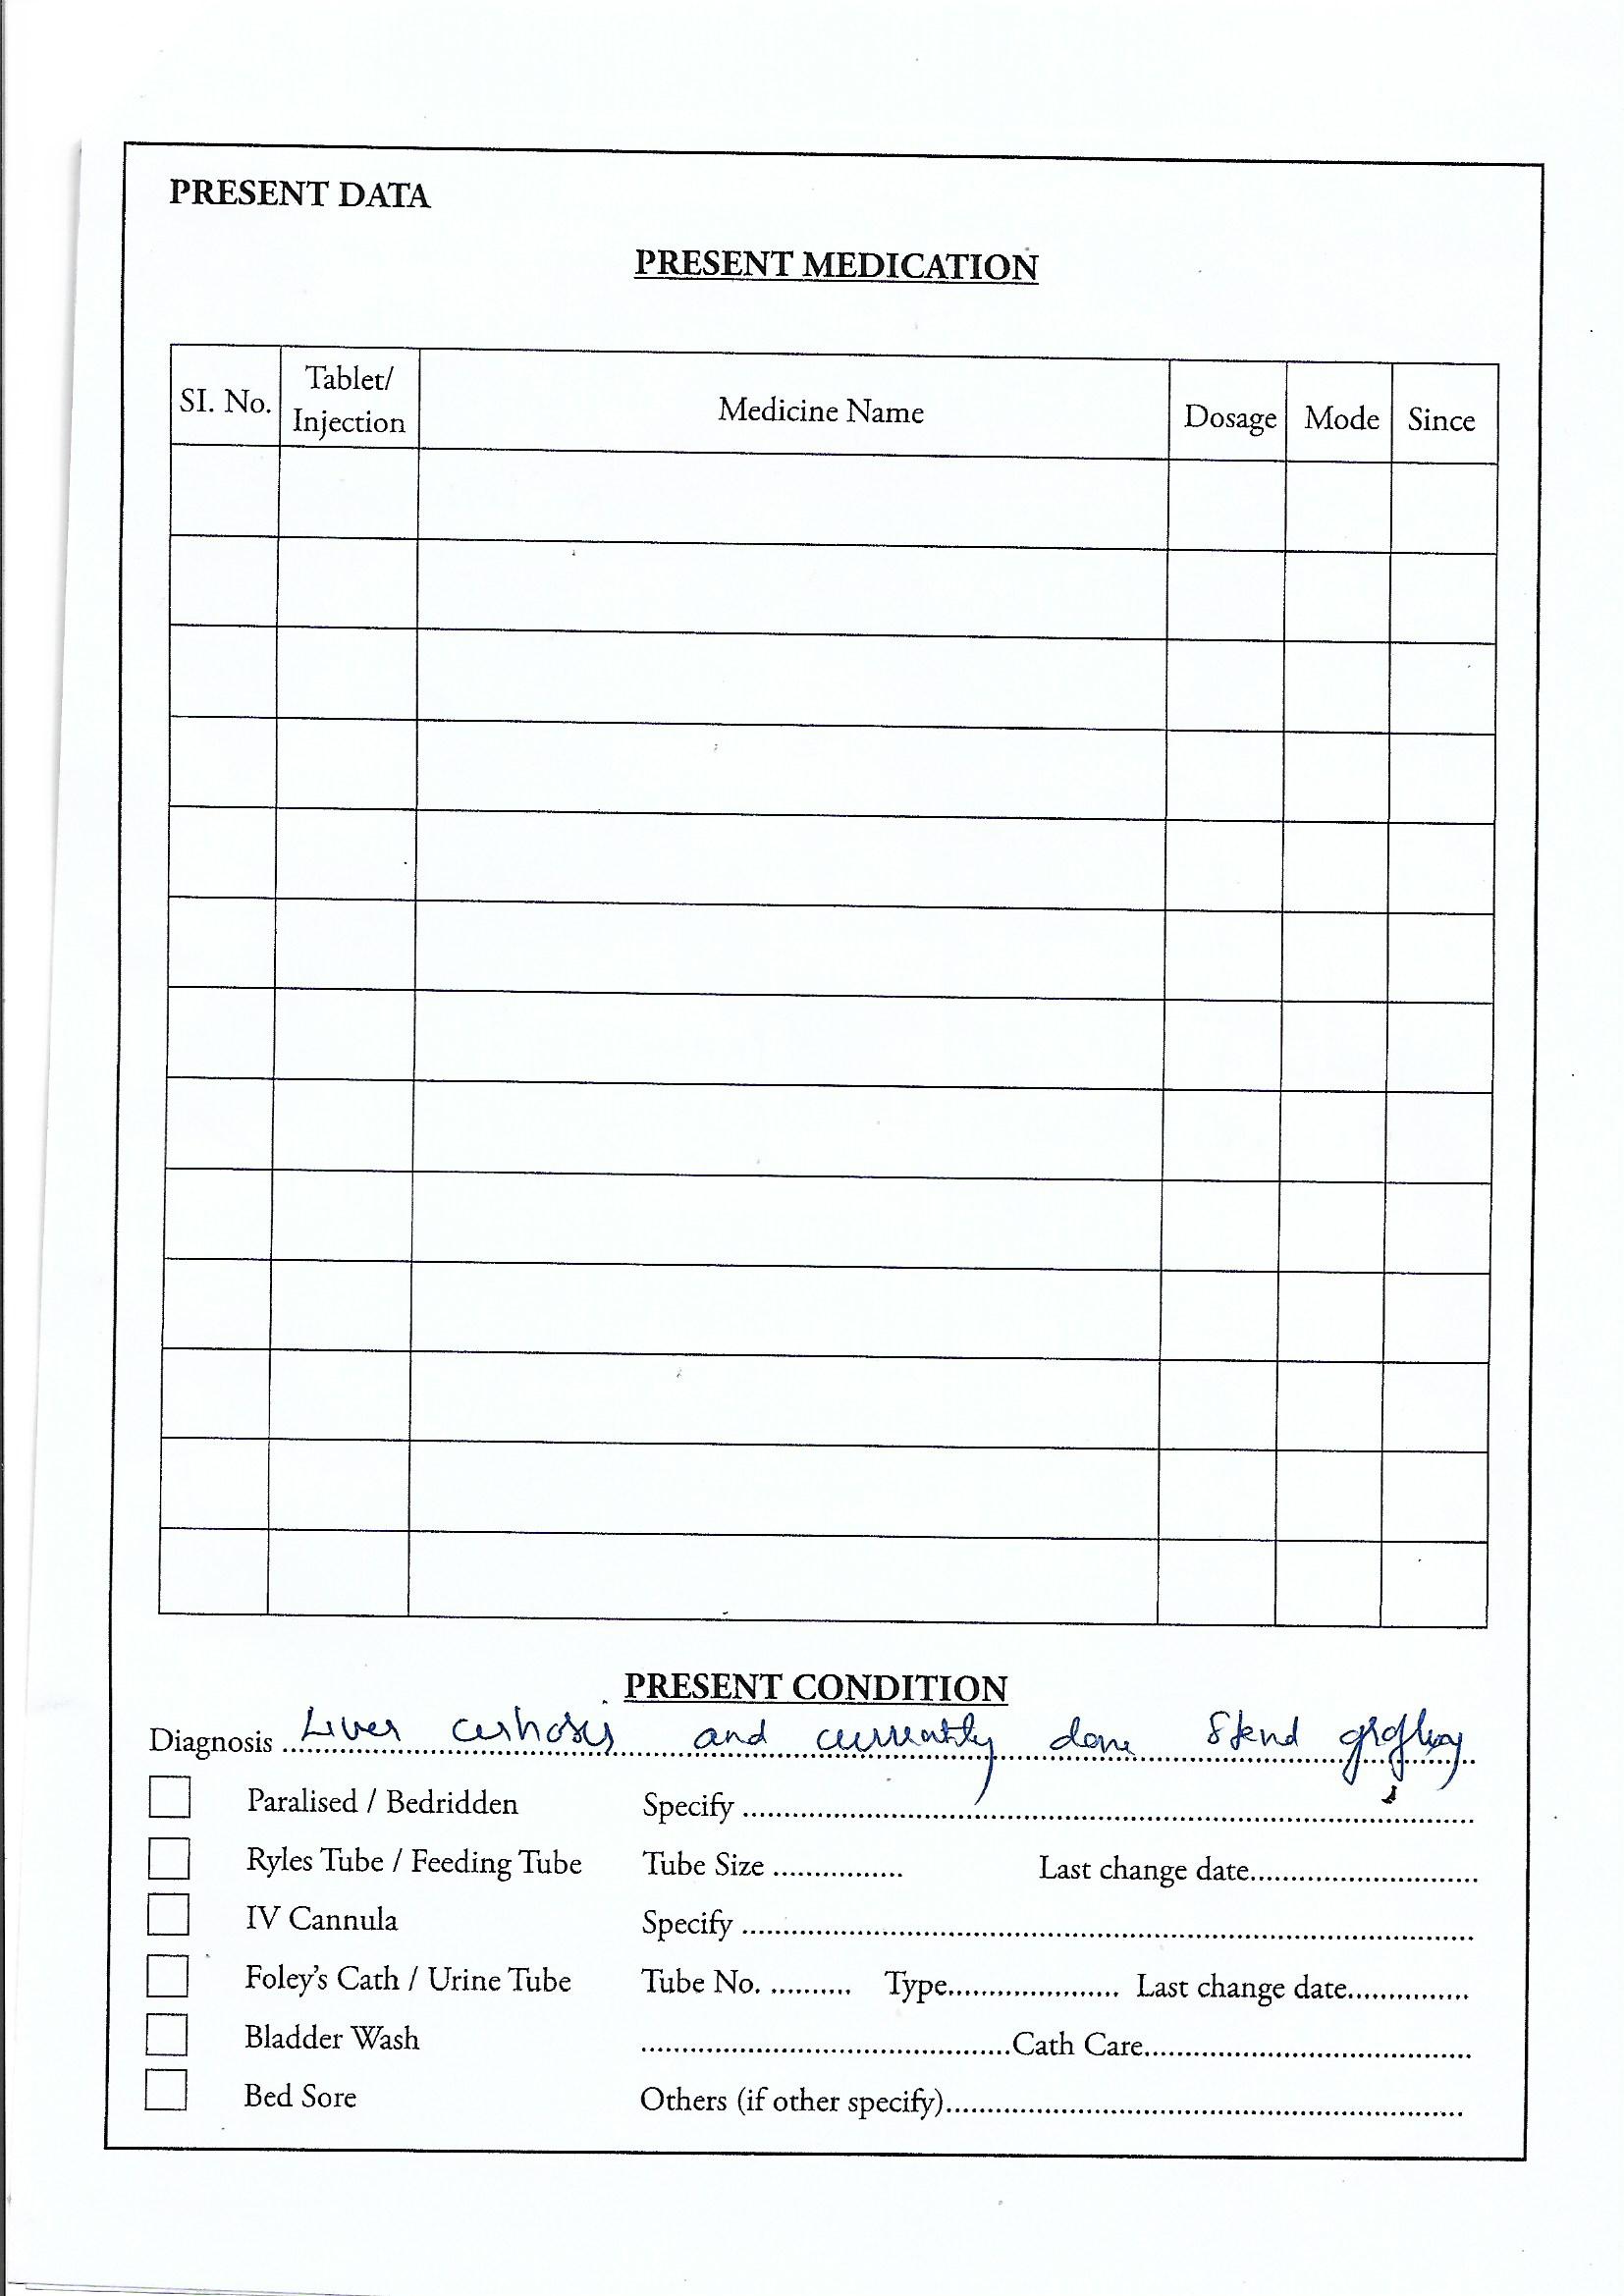 PRESENT DATA
PRESENT MEDICATION
SI. No. Tablet/ Injection Medicine Name Dosage Mode Since
PRESENT CONDITION
Diagnosis Liver and currently done
Paralised / Bedridden Specify
Ryles Tube / Feeding Tube Tube Size Last change date
IV Cannula Specify
Foley's Cath / Urine Tube Tube No. Type Last change date
Bladder Wash Cath Care
Bed Sore Others (if other specify)